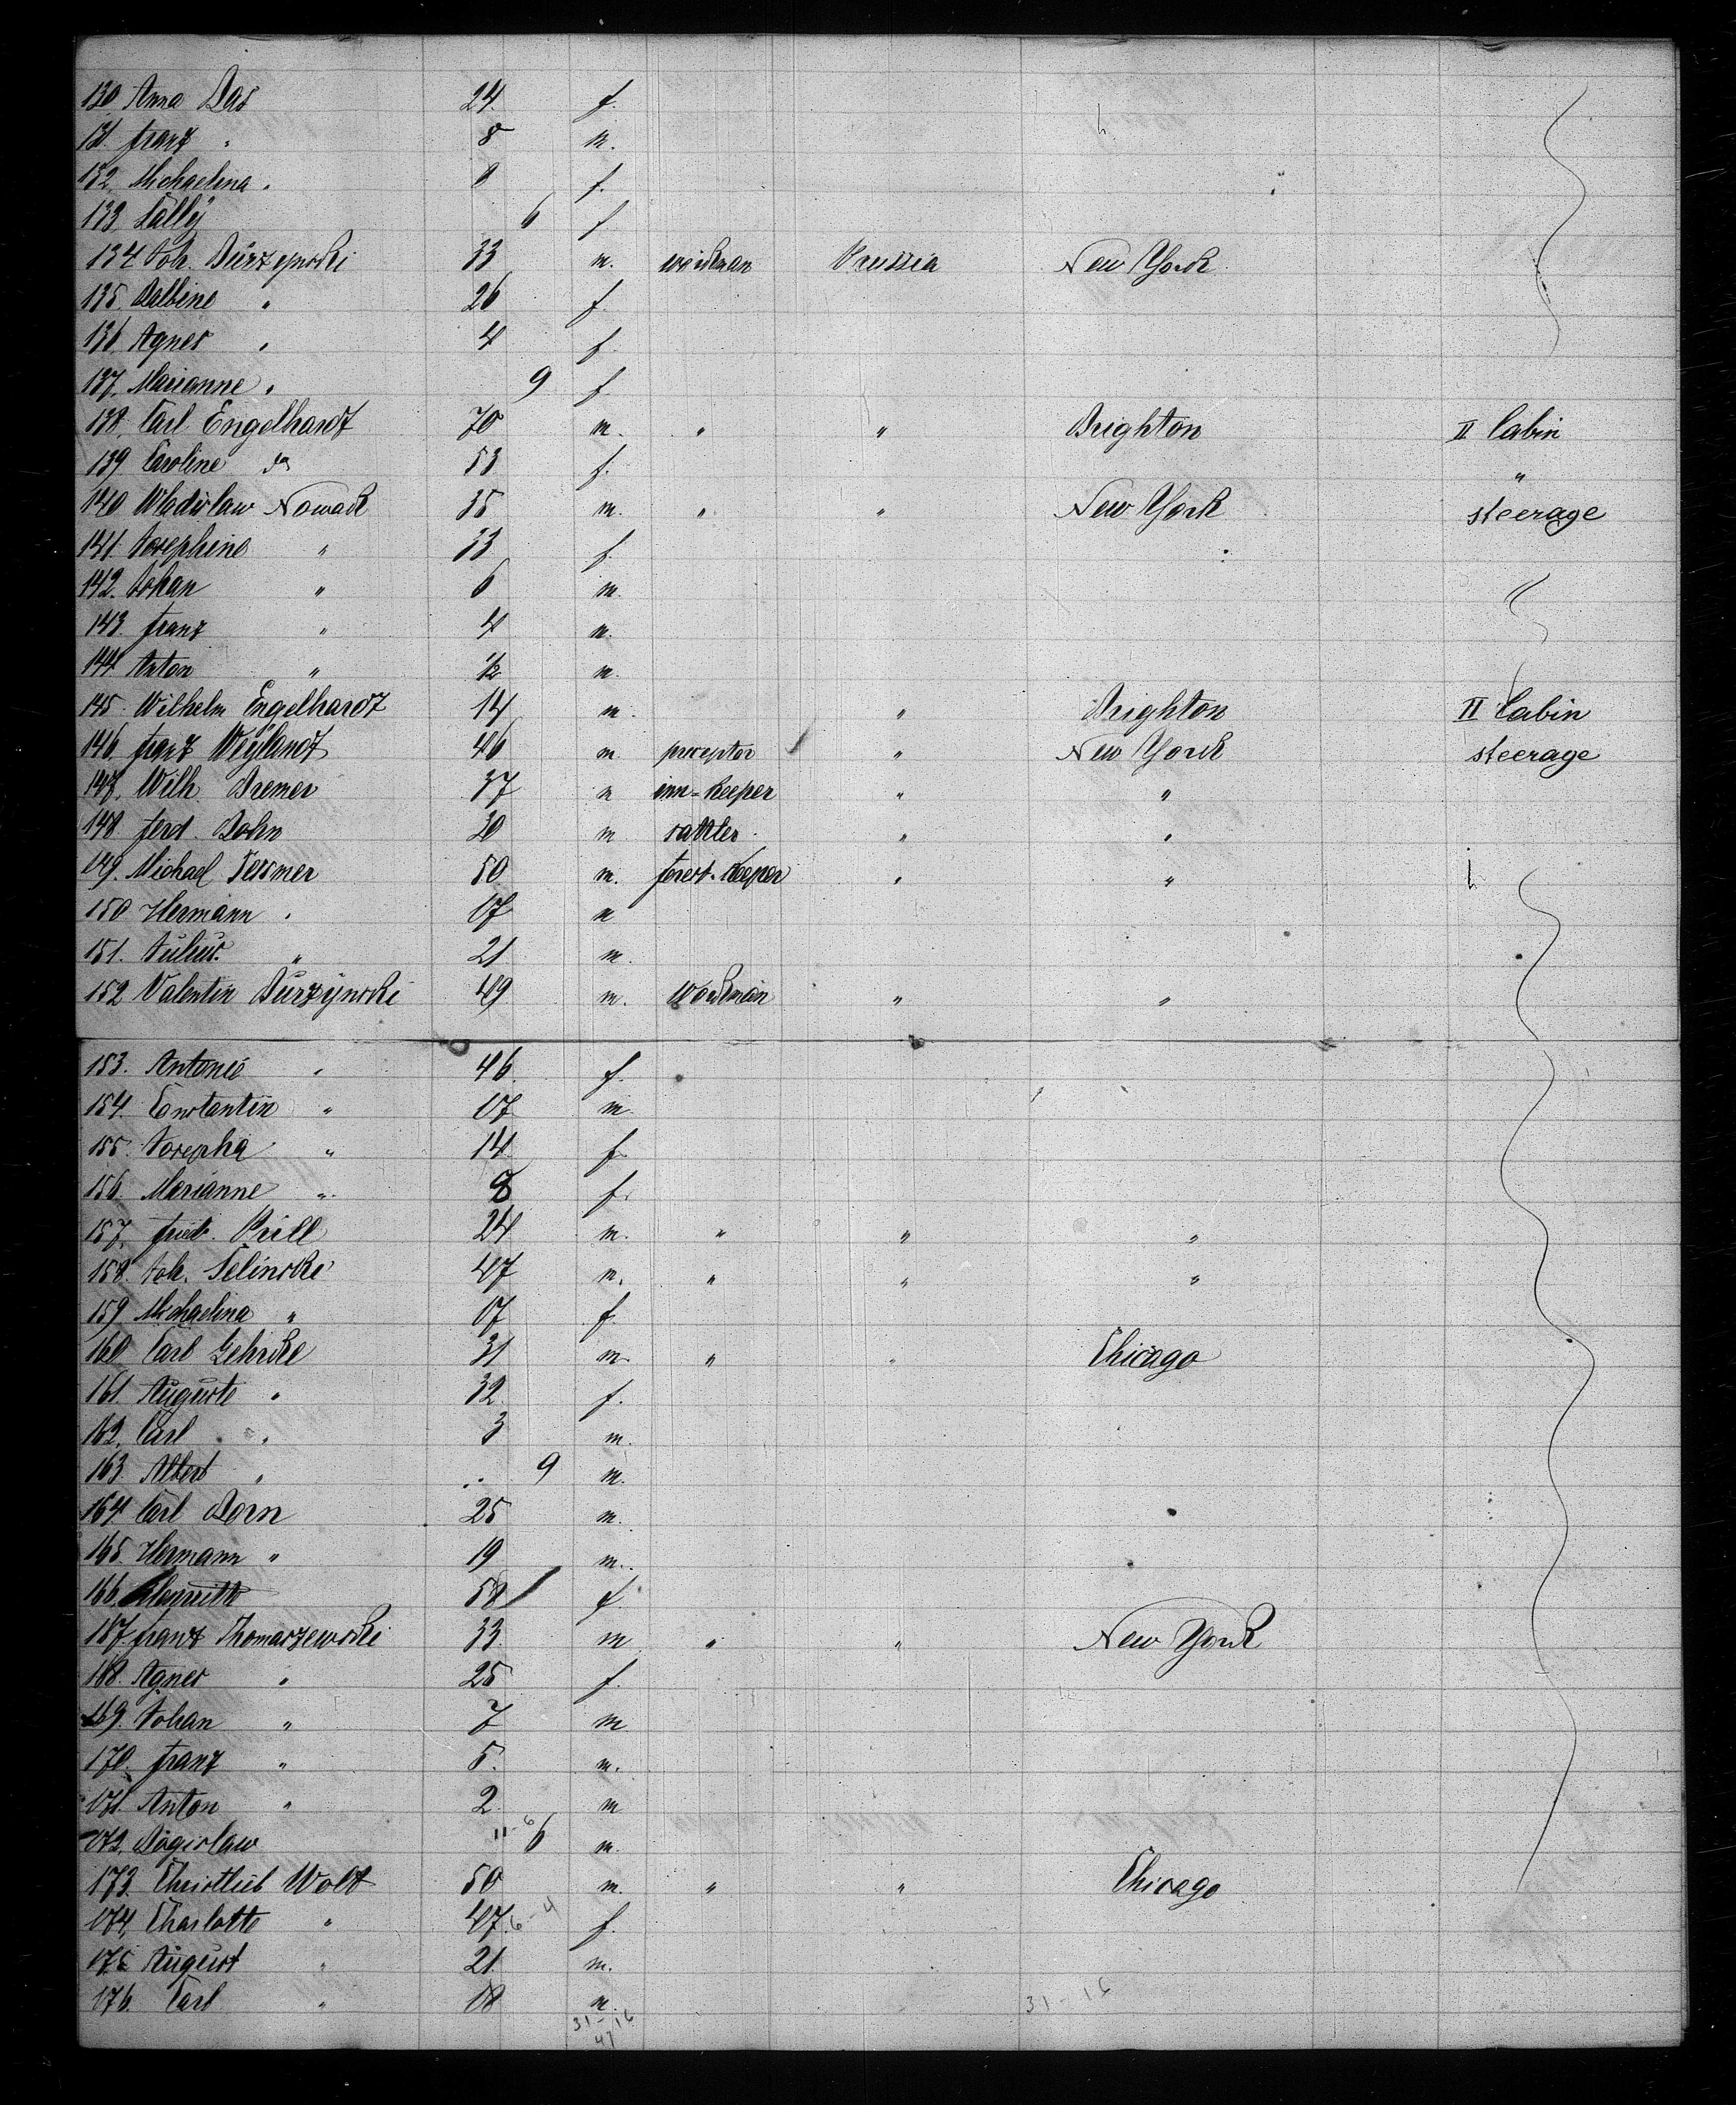 130 Anna Das 24. f.
131. Franz " 8 m.
132. Michaelina " f.
133 6 f
134 Joh. Durzynski 33 m. workman Prussia New York
135. Balbine " 26 f.
136. Agnes " 4 f.
137. Marianne " 9 f.
138. Carl Engelhardt 70 m. " " Brighton II Cabin
139 Caroline do 53 f. "
140 Wladislaw Nowack 35 m. " " New York steerage
141. Josephine " 33 f.
142. Johan " 6 m.
143. Franz " 4 m.
144 Anton " 1/2 m.
145. Wilhelm Engelhardt 14 m. " Brighton II Cabin
146. Franz Weylandt 46 m. preceptor " New York steerage
147. Wilh. Bremer 37 m inn-keeper " "
148 Ferd. Bohn 30 m sattler " "
149. Michael Tessmer 50 m. forest-keeper " "
150 Hermann " 17 m
151. Julius " 21 m.
152 Valentin Durzynski 49 m. workman " "
153. Antonie " 46. f.
154. Constantin " 17 m.
155. Josepha " 14. f
156. Marianne " 8 f.
157. Fried. Prill 24 m. " " "
158. Joh. Zelinski 47 m. " " "
159 Michaelina " 17 f.
160 Carl Gehrke 31 m. " " Chicago
161. Auguste " 32. f.
162. Carl " 3 m.
163 Albert " 9 m.
164. Carl Dorn 25 m.
165. Hermann " 19 m.
166. Henriette 58 f.
167. Franz Thomaszewski 33. m " " New York
168. Agnes " 25 f.
169. Johan " 7 m
170. Franz " 5. m.
171. Anton " 2 m
11-6
172. Bogislaw 6 m.
173. Christlieb Wolt 50 m. " " Chicago
174. Charlotte " 47. 6-4 f.
175. August " 21. m.
176. Carl " 18 m.
31-16 31-16
47